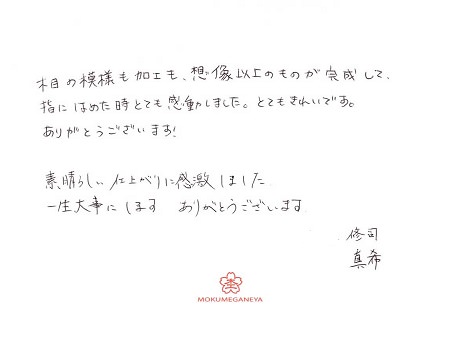 木目の模様も加工も、想像以上のものが完成して、
指にはめた時とても感動しました。とてもきれいです。
ありがとうございます!
素晴らしい仕上がりに感激しました
一生大事にします ありがとうございます
修司
真希
MOKUMEGANEYA